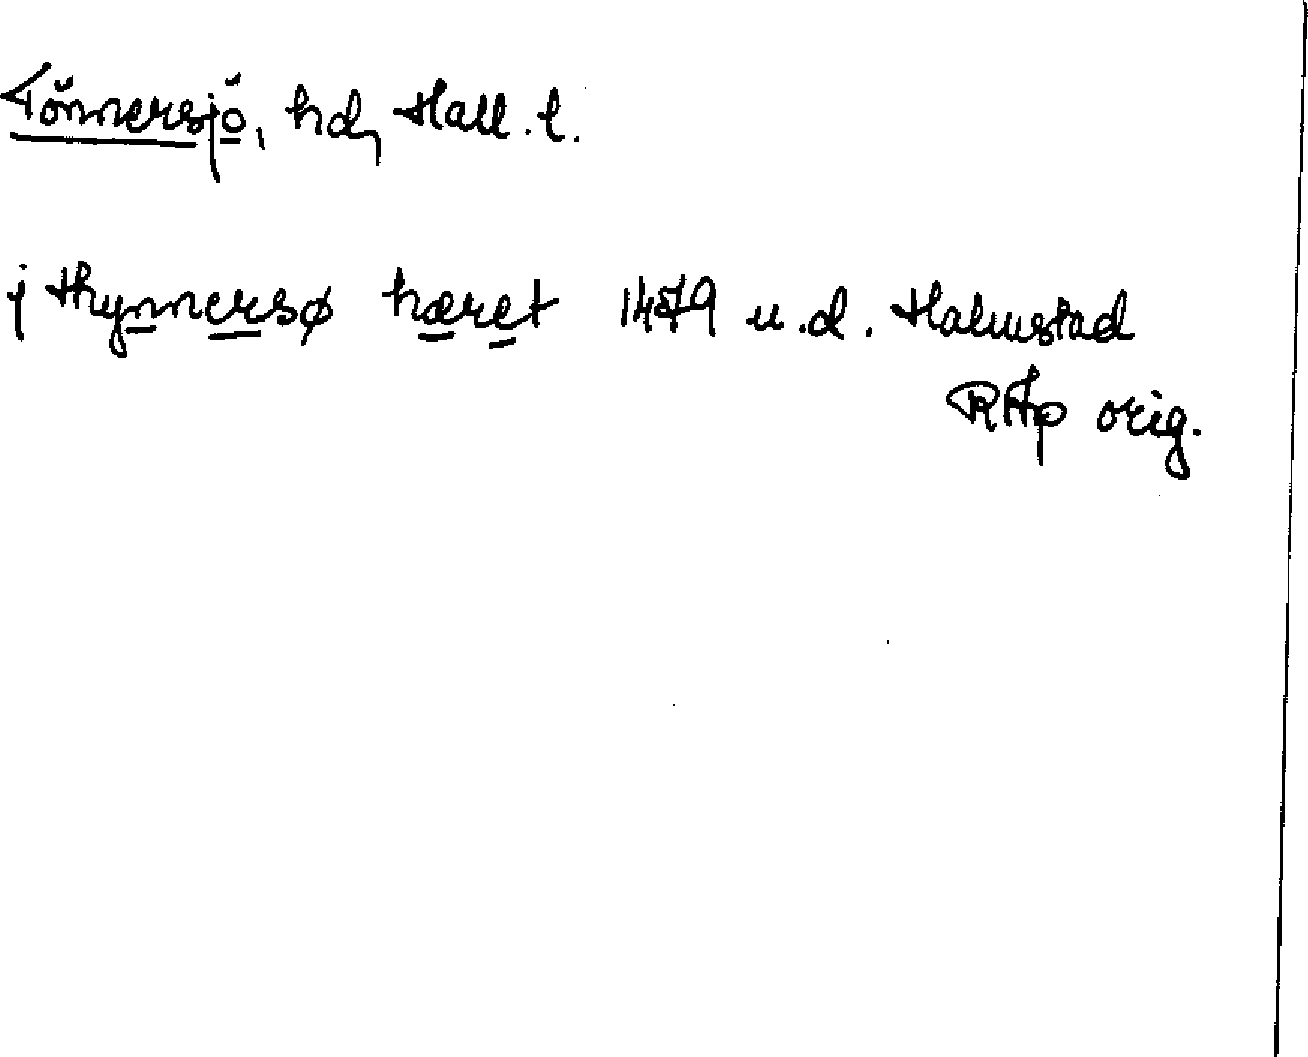 Tönnersjö, hd, Hall. l.
j thynnersø hæret 1479 u.d. Halmstad
RAp orig.